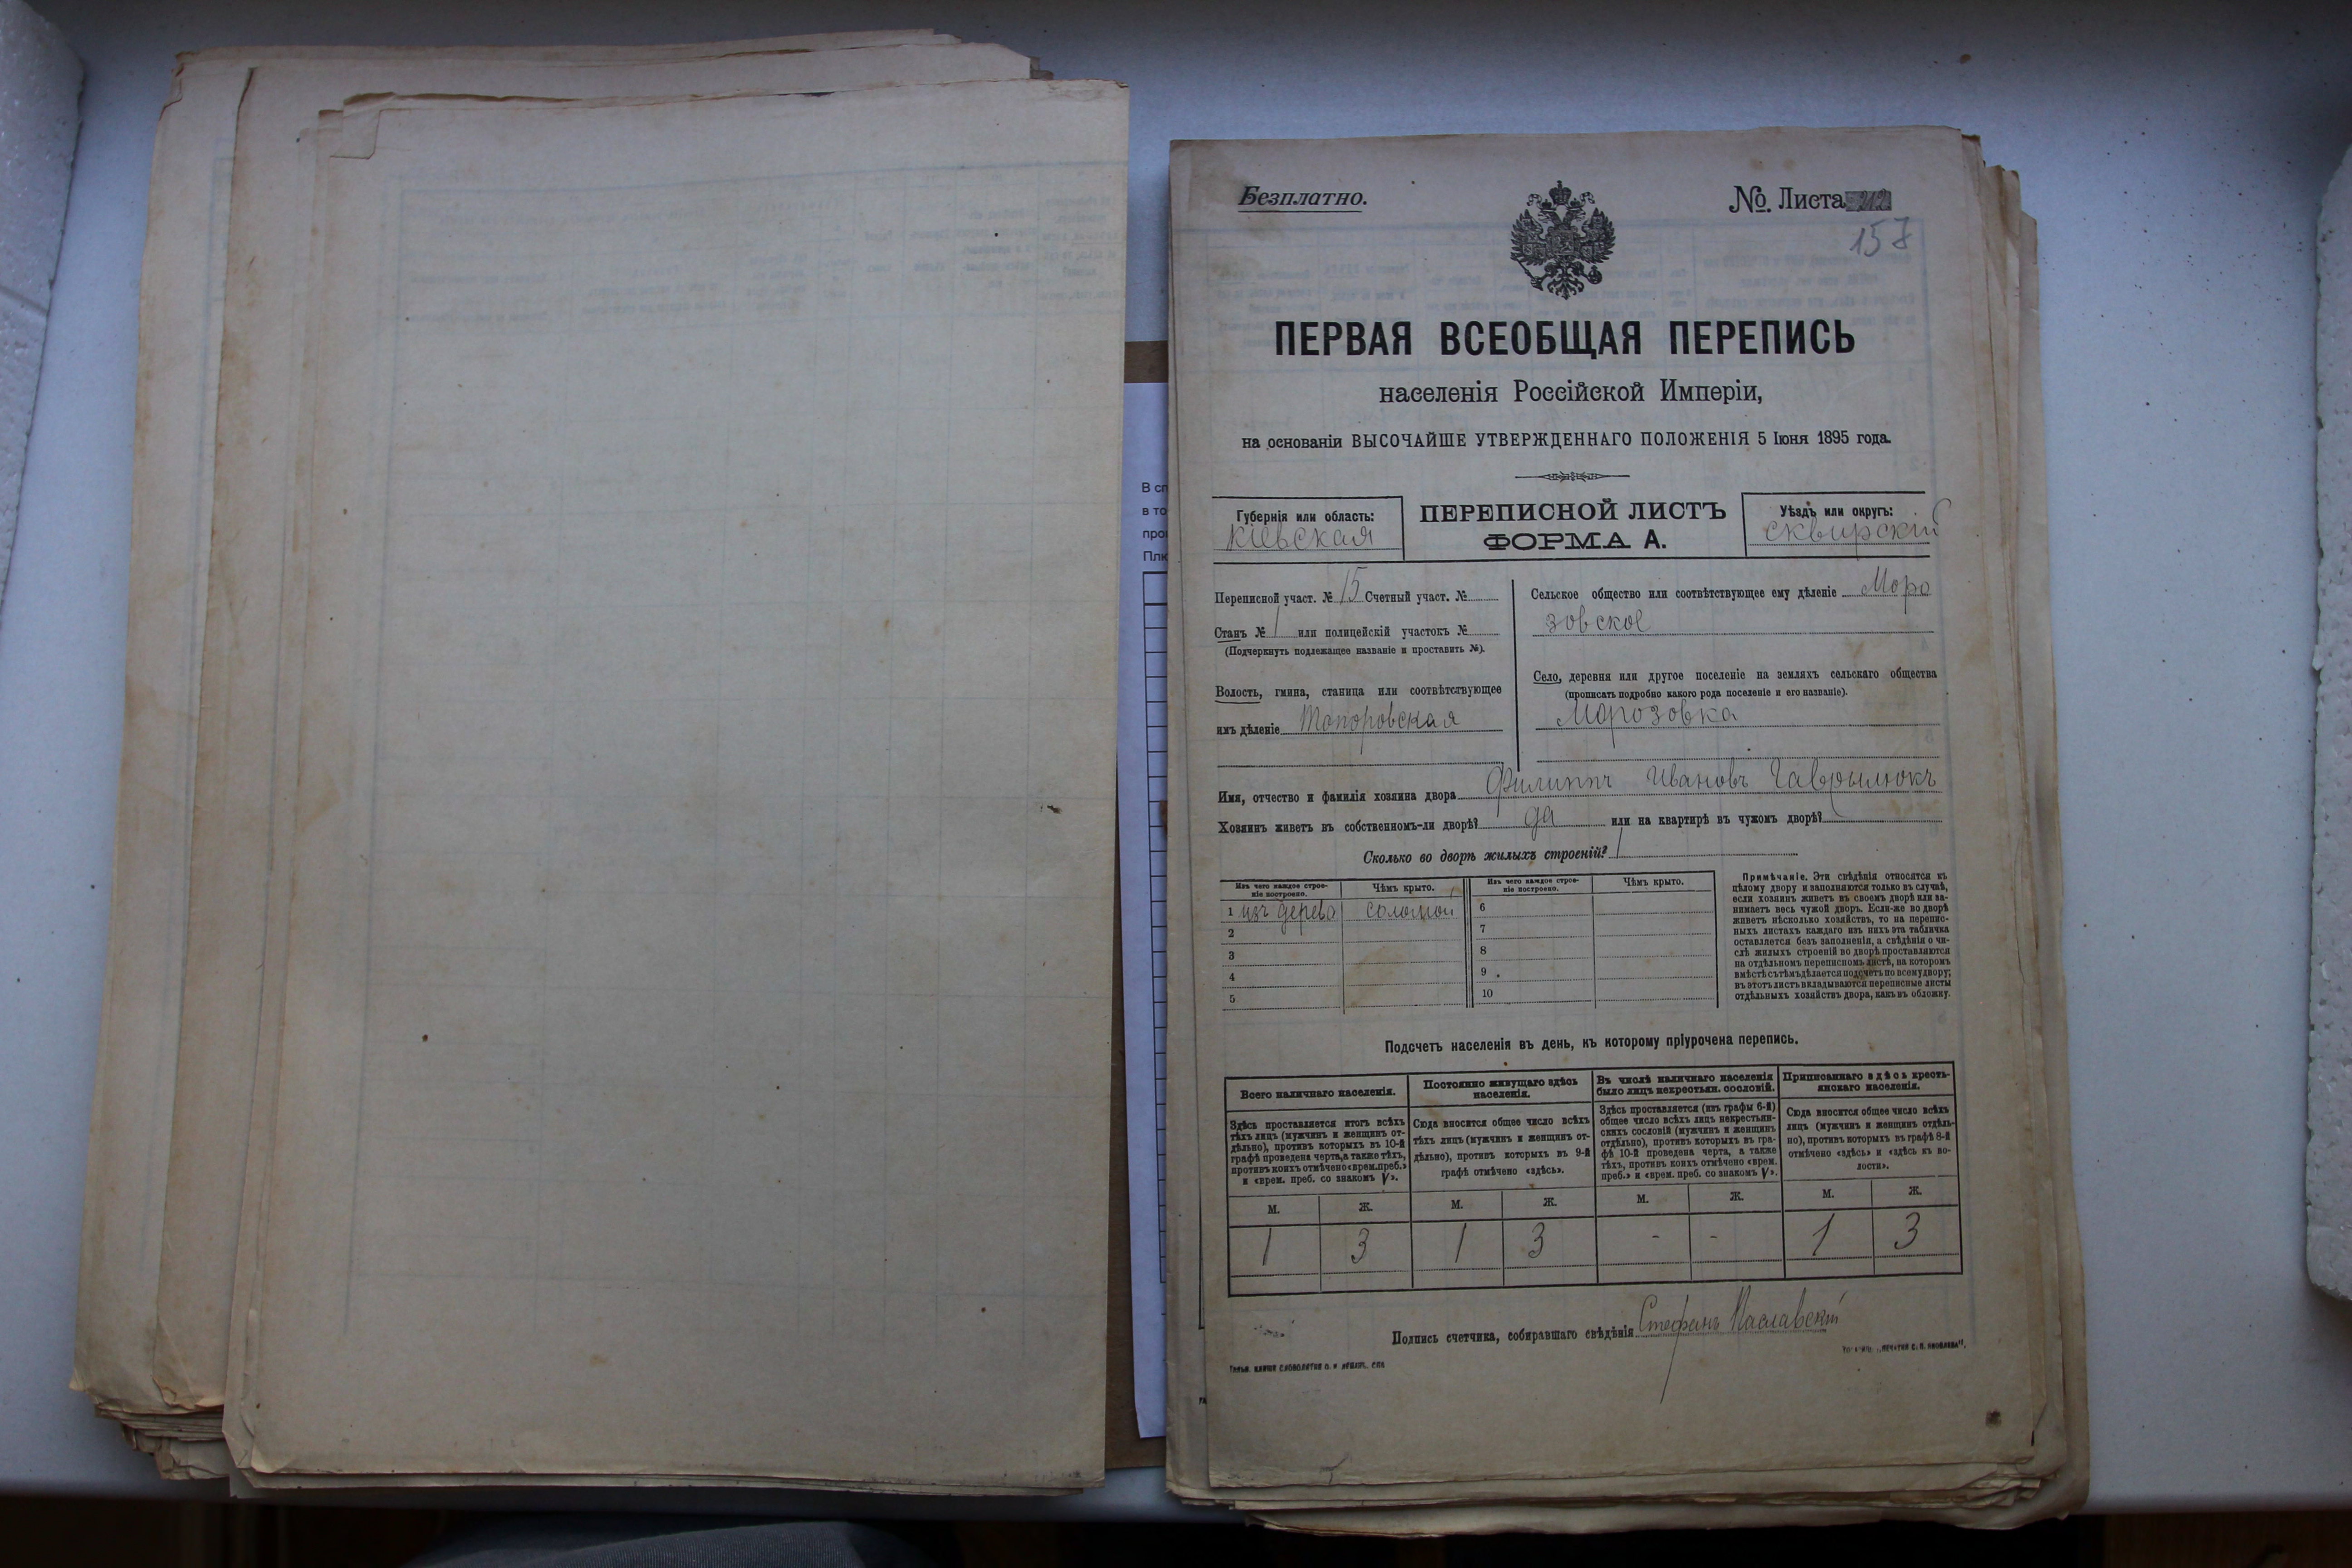 Безплатно.
№. Листа
157
ПЕРВАЯ ВСЕОБЩАЯ ПЕРЕПИСЬ
населенія Россійской Имперіи,
на основаніи ВЫСОЧАЙШЕ УТВЕРЖДЕННАГО ПОЛОЖЕНІЯ 5 Іюня 1895 года.
Губернія или область:
Кіевская
ПЕРЕПИСНОЙ ЛИСТЪ
ФОРМА А.
Уѣздъ или округъ:
Сквирскій
Переписной участ. № 15 Счетный участ. №
Станъ № 1 или полицейскій участокъ №
(Подчеркнуть подлежащее названіе и проставить №).
Волость, гмина, станица или соотвѣтствующее
имъ дѣленіе Топоровская
Сельское общество или соотвѣтствующее ему дѣленіе Моро
зовское
Село, деревня или другое поселеніе на земляхъ сельскаго общества
(прописать подробно какого рода поселеніе и его названіе).
Морозовка
Имя, отчество и фамилія хозяина двора Филиппъ Ивановъ Гаврылюкъ
Хозяинъ живетъ въ собственномъ-ли дворѣ? да или на квартирѣ въ чужомъ дворѣ?
Сколько во дворѣ жилыхъ строеній? 1
Изъ чего каждое строе-
ніе построено.
Чѣмъ крыто.
Изъ чего каждое строе-
ніе построено.
Чѣмъ крыто.
1 изъ дерева соломой 6
2 7
3 8
4 9
5 10
Примѣчаніе. Эти свѣдѣнія относятся къ
цѣлому двору и заполняются только въ случаѣ,
если хозяинъ живетъ въ своемъ дворѣ или за-
нимаетъ весь чужой дворъ. Если-же во дворѣ
живетъ нѣсколько хозяйствъ, то на перепис-
ныхъ листахъ каждаго изъ нихъ эта табличка
оставляется безъ заполненія, а свѣдѣнія о чи-
слѣ жилыхъ строеній во дворѣ проставляются
на отдѣльномъ переписномъ листѣ, на которомъ
вмѣстѣ съ тѣмъ дѣлается подсчетъ по всему двору;
въ этотъ листъ вкладываются переписные листы
отдѣльныхъ хозяйствъ двора, какъ въ обложку.
Подсчетъ населенія въ день, къ которому пріурочена перепись.
Всего наличнаго населенія.
Здѣсь проставляется итогъ всѣхъ
тѣхъ лицъ (мужчинъ и женщинъ от-
дѣльно), противъ которыхъ въ 10-й
графѣ проведена черта, а также тѣхъ,
противъ коихъ отмѣчено «врем. преб.»
и «врем. преб. со знакомъ V».
Постоянно живущаго здѣсь
населенія.
Сюда вносится общее число всѣхъ
тѣхъ лицъ (мужчинъ и женщинъ от-
дѣльно), противъ которыхъ въ 9-й
графѣ отмѣчено «здѣсь».
Въ числѣ наличнаго населенія
было лицъ некрестьян. сословій.
Здѣсь проставляется (изъ графы 6-й)
общее число всѣхъ лицъ некрестьян-
скихъ сословій (мужчинъ и женщинъ
отдѣльно), противъ которыхъ въ гра-
фѣ 10-й проведена черта, а также
тѣхъ, противъ коихъ отмѣчено «врем.
преб.» и «врем. преб. со знакомъ V».
Приписаннаго здѣсь кресть-
янскаго населенія.
Сюда вносится общее число всѣхъ
лицъ (мужчинъ и женщинъ отдѣль-
но), противъ которыхъ въ графѣ 8-й
отмѣчено «здѣсь» и «здѣсь къ во-
лости».
М. Ж. М. Ж. М. Ж. М. Ж.
1 3 1 3 - - 1 3
Подпись счетчика, собиравшаго свѣдѣнія Стефанъ Паславскій
В сл
в то
про
Плю